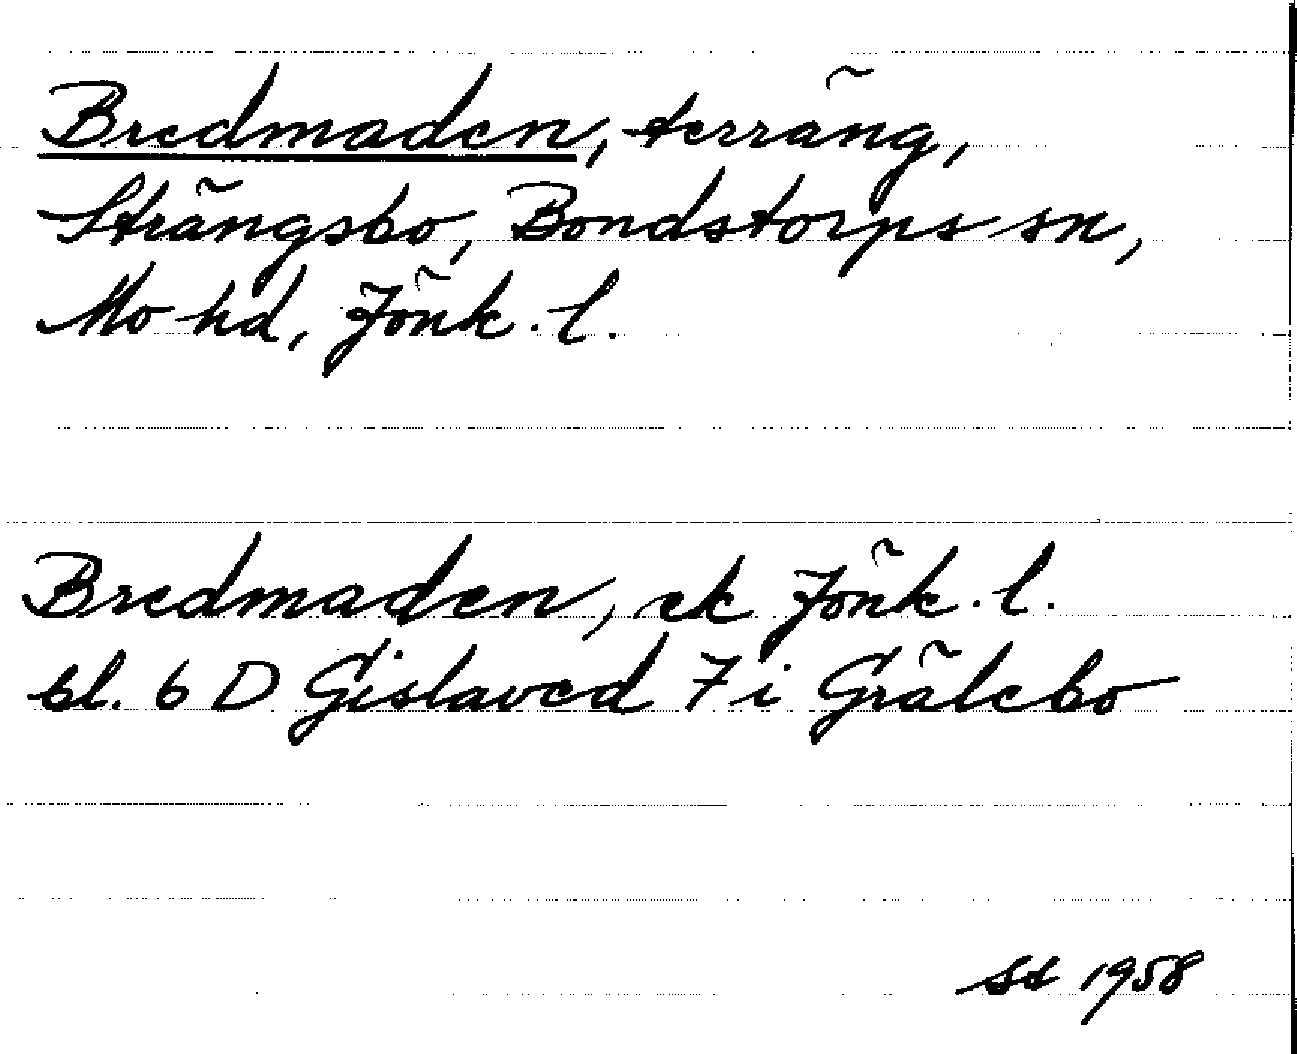 Bredmaden, terräng,
Strängsbo, Bondstorps sn,
Mo hd, Jönk. l.
Bredmaden, ek Jönk. l.
bl. 6 D Gislaved 7 i Grälebo
Sd 1958